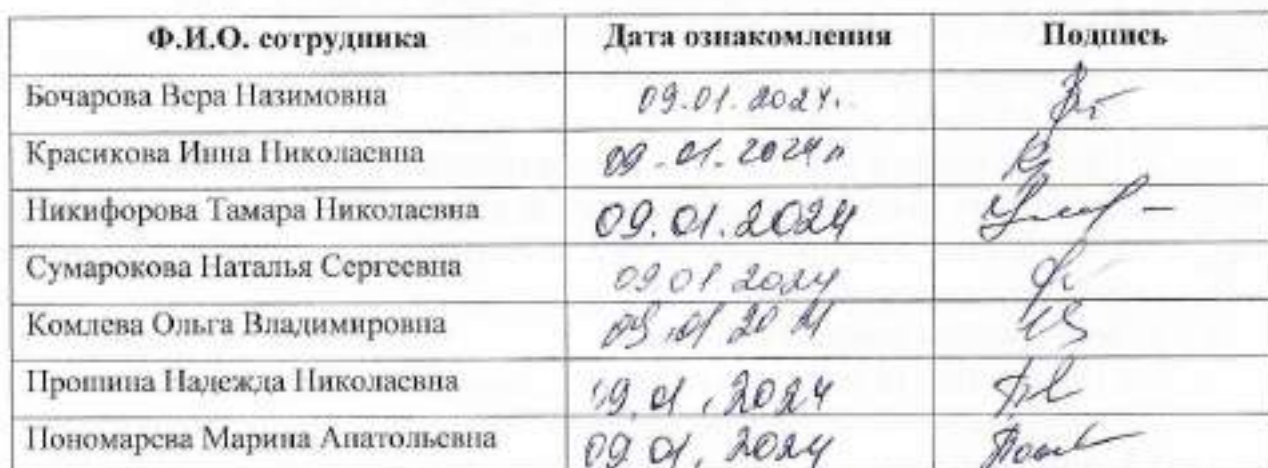 Ф.И.О. сотрудника Дата ознакомления Подпись
Бочарова Вера Назимовна 09.01.2024г.
Красикова Инна Николаевна 09.01.2024г
Никифорова Тамара Николаевна 09.01.2024
Сумарокова Наталья Сергеевна 09.01.2024
Комлева Ольга Владимировна 09.01.2024
Прошина Надежда Николаевна 09.01.2024
Пономарева Марина Анатольевна 09.01.2024